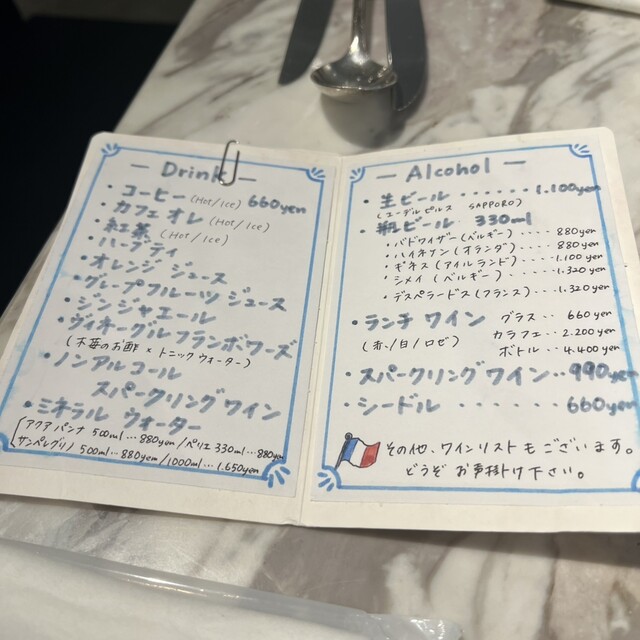 — Drink —
・コーヒー (Hot/Ice) 660yen
・カフェオレ (Hot/Ice)
・紅茶 (Hot/Ice)
・ハーブティ
・オレンジ ジュース
・グレープフルーツ ジュース
・ジンジャエール
・ヴィネーグルフランボワーズ
(木苺のお酢 × トニックウォーター)
・ノンアルコール
スパークリングワイン
・ミネラル ウォーター
アクアパンナ 500ml…880yen/ペリエ 330ml…880yen
サンペレグリノ 500ml…880yen/1000ml…1.650yen
— Alcohol —
・生ビール ・・・・・・ 1.100yen
(エーデルピルス SAPPORO)
・瓶ビール 330ml
・バドワイザー(ベルギー)・・・・ 880yen
・ハイネケン(オランダ)・・・ 880yen
・ギネス(アイルランド)・・・・ 1.100yen
・シメイ(ベルギー)・・・・・ 1.320yen
・デスペラードス(フランス)・・・ 1.320yen
・ランチ ワイン グラス・・ 660yen
(赤/白/ロゼ) カラフェ・・2.200yen
ボトル・・4.400yen
・スパークリングワイン・・990yen
・シードル・・・・・・・ 660yen
その他、ワインリストもございます。
どうぞ お声掛け下さい。